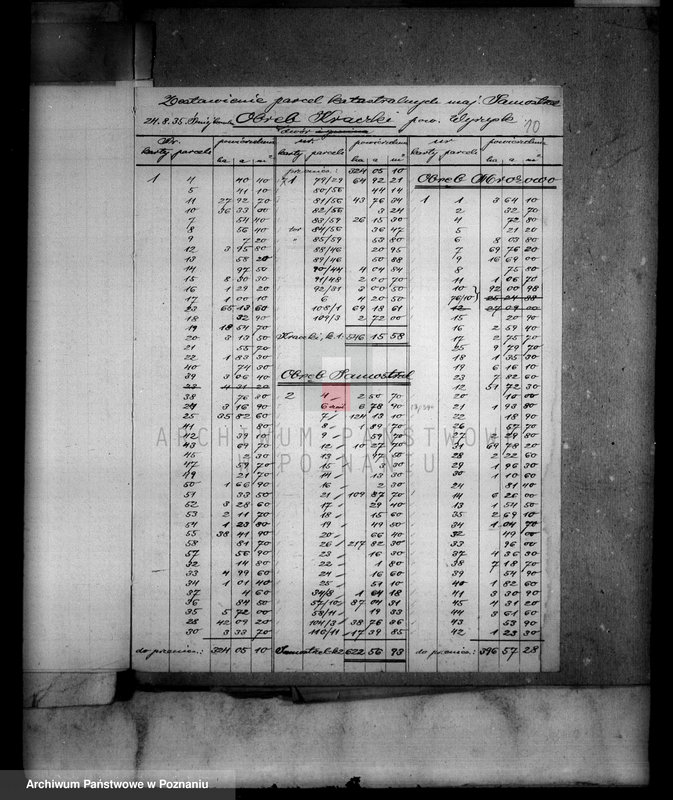 Zestawienie parcel katastralnych maj. Samostrzel
24.8.35. Obręb Kraczki pow. Wyrzysk 10
Nr. powierzchnia
karty parceli ha a m²
1 4 40 40
5 41 10
11 27 92 70
10 36 33 00
7 54 40
8 56 40
9 7 20
12 3 95 80
13 58 20
14 97 50
15 8 30 30
16 1 29 20
17 1 00 10
23 65 13 60
18 32 90
19 18 54 70
20 3 13 50
21 55 70
22 1 83 30
40 74 30
39 3 06 40
38 76 80
24 3 16 90
25 35 82 60
41 80
42 39 10
43 69 70
45 2 30
47 59 70
49 21 70
50 1 66 90
51 33 50
52 3 28 60
53 2 11 70
54 1 23 80
55 38 41 90
58 81 70
57 56 90
32 14 80
33 4 99 60
34 1 01 40
37 4 60
36 84 50
35 5 72 00
28 42 09 20
30 3 33 70
do przenies.: 324 05 10
nr. powierzchnia
karty parceli ha a m²
przenies.: 324 05 10
1 79/29 64 92 21
80/56 44 14
81/56 43 76 34
82/56 3 24
83/59 26 15 30
84/56 36 47
85/59 53 80
88/46 20 95
89/46 50 88
90/44 4 04 84
91/48 2 00 70
92/31 3 00 50
6 4 20 50
108/1 69 18 61
109/3 2 72 00
Kraczki, k.1: 546 15 58
Obręb Samostrzel
2 4 2 50 70
6 6 78 90
7 124 13 10
8 1 89 70
9 59 70
12 10 27 70
13 97 50
15 3 30
14 13 30
16 2 30
21 109 87 70
17 29 40
18 15 60
19 49 50
20 66 40
26 217 82 30
23 16 30
22 1 80
24 16 60
25 59 10
34/8 1 64 18
57/10 87 04 31
58/11 19 33
104/3 38 76 96
110/11 17 39 85
Samostrzel k.2 622 56 93
nr powierzchnia
karty parceli ha a m²
Obręb Mrozowo
1 1 3 64 10
2 32 70
4 72 80
5 21 20
6 8 03 80
7 69 76 20
9 16 69 00
8 75 80
11 1 06 70
10 92 00 98
76/10 25 24 98
12 27 29 00
15 20 90
16 2 59 40
17 2 75 70
55 9 79 70
18 1 35 30
19 6 16 10
23 7 82 60
12 51 72 30
20 10 00
21 1 93 80
22 18 90
26 57 70
27 2 29 80
31 69 78 20
28 2 22 60
29 1 96 30
30 1 10 60
24 81 40
14 6 26 00
13 1 54 50
35 2 69 10
34 1 04 70
32 49 00
33 96 00
37 4 36 30
38 7 18 70
39 54 90
40 1 82 60
41 3 30 90
45 4 31 20
44 3 61 60
43 53 90
42 1 23 30
do przenies.: 396 57 28
ARCHIWUM PAŃSTWOWE
W POZNANIU
Archiwum Państwowe w Poznaniu